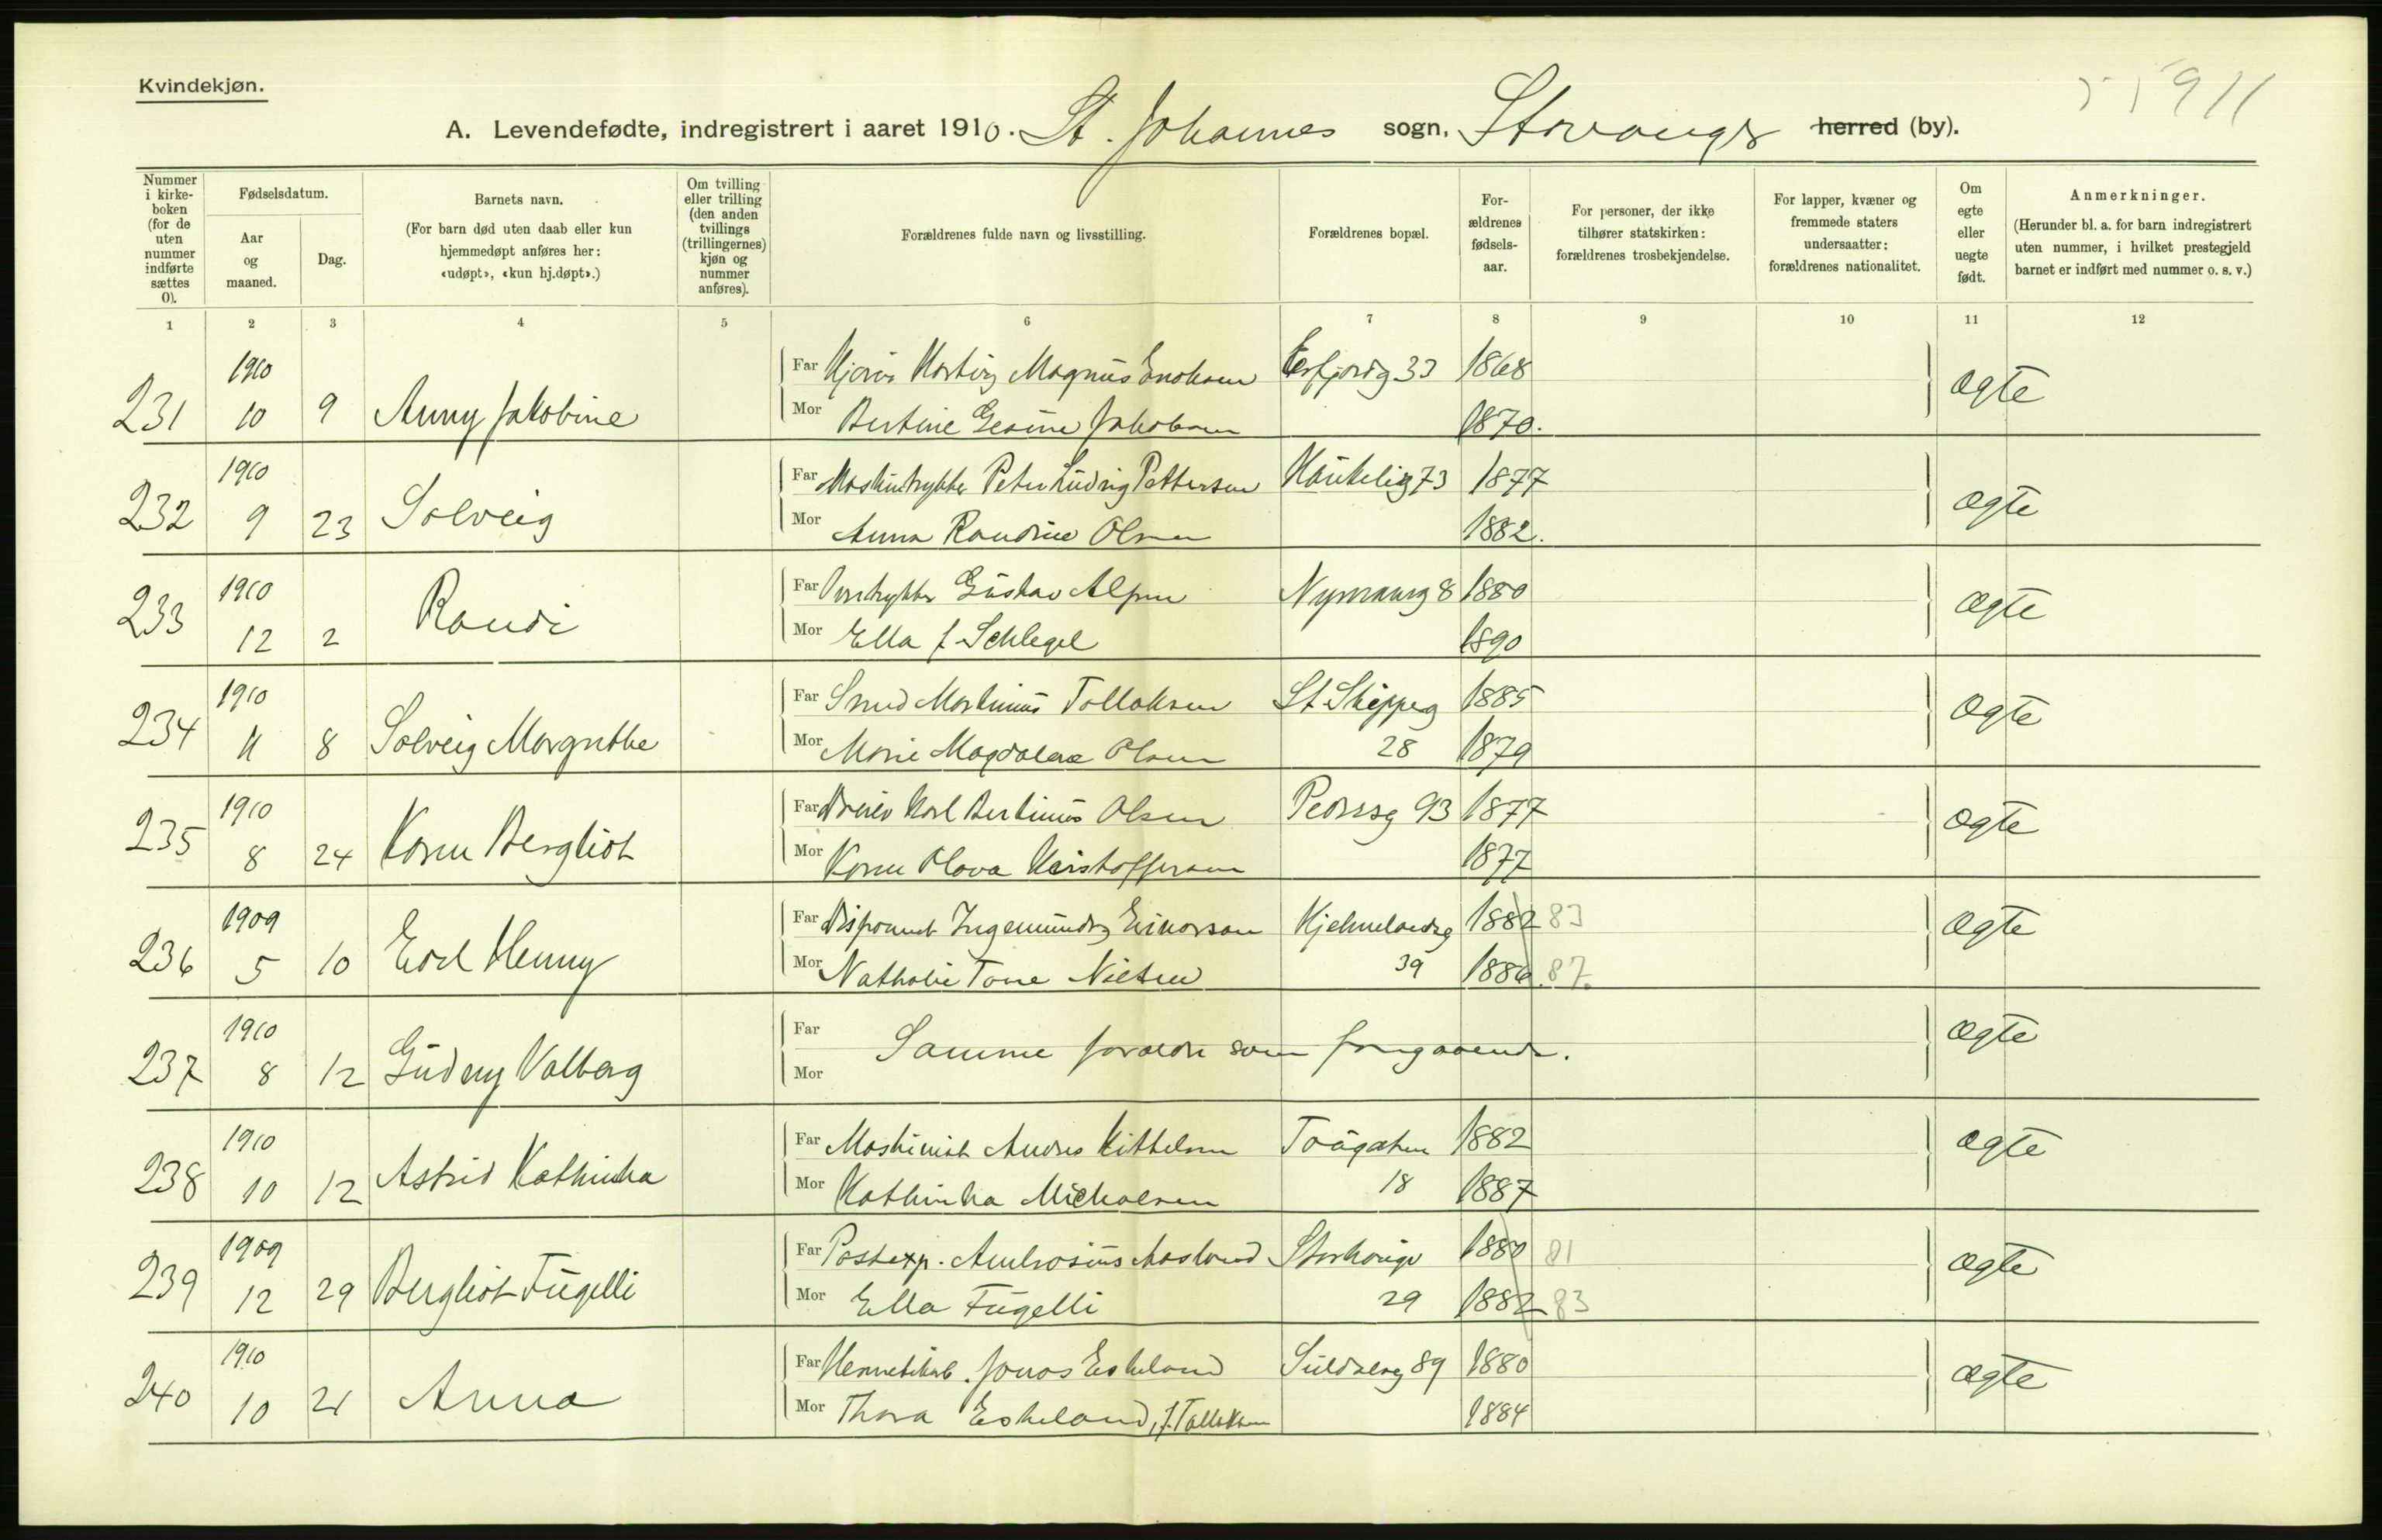 Kvindekjøn.
A. Levendefødte, indregistrert i aaret 1910. St. Johannes sogn, Stavanger herred (by).
Nummer i kirkeboken (for de uten nummer indførte sættes 0).
Fødselsdatum.
Aar og maaned.
Dag.
Barnets navn.
(For barn død uten daab eller kun hjemmedøpt anføres her: «udøpt», «kun hj.døpt».)
Om tvilling eller trilling (den anden tvillings (trillingernes) kjøn og nummer anføres).
Forældrenes fulde navn og livsstilling.
Forældrenes bopæl.
Forældrenes fødselsaar.
For personer, der ikke tilhører statskirken: forældrenes trosbekjendelse.
For lapper, kvæner og fremmede staters undersaatter: forældrenes nationalitet.
Om egte eller uegte født.
Anmerkninger.
(Herunder bl. a. for barn indregistrert uten nummer, i hvilket prestegjeld barnet er indført med nummer o. s. v.)
1 2 3 4 5 6 7 8 9 10 11 12
1910 Far Magnus Enoksen 33 1868
231 10 9 Anny Jakobine Mor Bertine Gesine Jakobsen 1870. ægte
1910 Far Maskintrykker Peter Ludvig Pettersen Haukelig 73 1877
232 9 23 Solveig Mor Anna Randine Olsen 1882. ægte
1910 Far Gustav 8 1880
233 12 2 Randi Mor Ella f. Schlegel 1890 ægte
1910 Far Smed Martinius Tollaksen St. Skippeg 1885
234 11 8 Solveig Margrethe Mor Marie Magdalene Olsen 28 1879 ægte
1910 Far Karl Bertinius Olsen Pedersg 93 1877
235 8 24 Karen Bergliot Mor Karen Olava Kristoffersen 1877 ægte
1909 Far Disponent Ingemundr Einarson Kjelvelandsg 1882 83
236 5 10 Henny Mor Nathalie Tone Nielsen 39 1886. 87. ægte
1910 Far Samme forældre som foregaaende.
237 8 12 Gudny Valborg Mor ægte
1910 Far Maskinist Andreas Kittelsen 1882
238 10 12 Astrid Kathinka Mor Kathinka Michalsen 18 1887 ægte
1909 Far Postexp. Ambrosius Aasland Storhaugv 1880 81
239 12 29 Bergliot Fugelli Mor Ella Fugelli 29 1882 83 ægte
1910 Far Jonas Eskeland Suldalsg 89 1880
240 10 21 Anna Mor Thora Eskeland, f. Tollaksen 1884 ægte